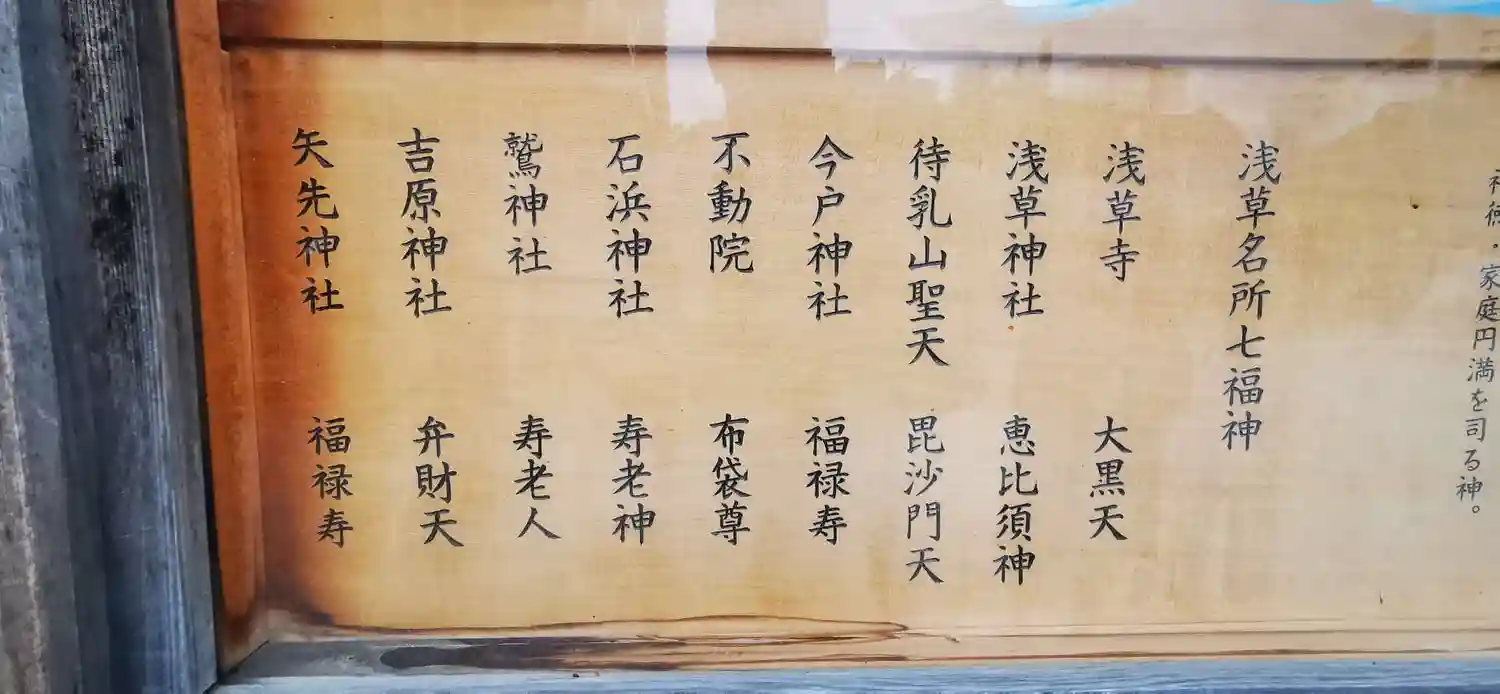 家庭円満を司る神。
浅草名所七福神
浅草寺 大黒天
浅草神社 恵比須神
待乳山聖天 毘沙門天
今戸神社 福禄寿
不動院 布袋尊
石浜神社 寿老神
鷲神社 寿老人
吉原神社 弁財天
矢先神社 福禄寿